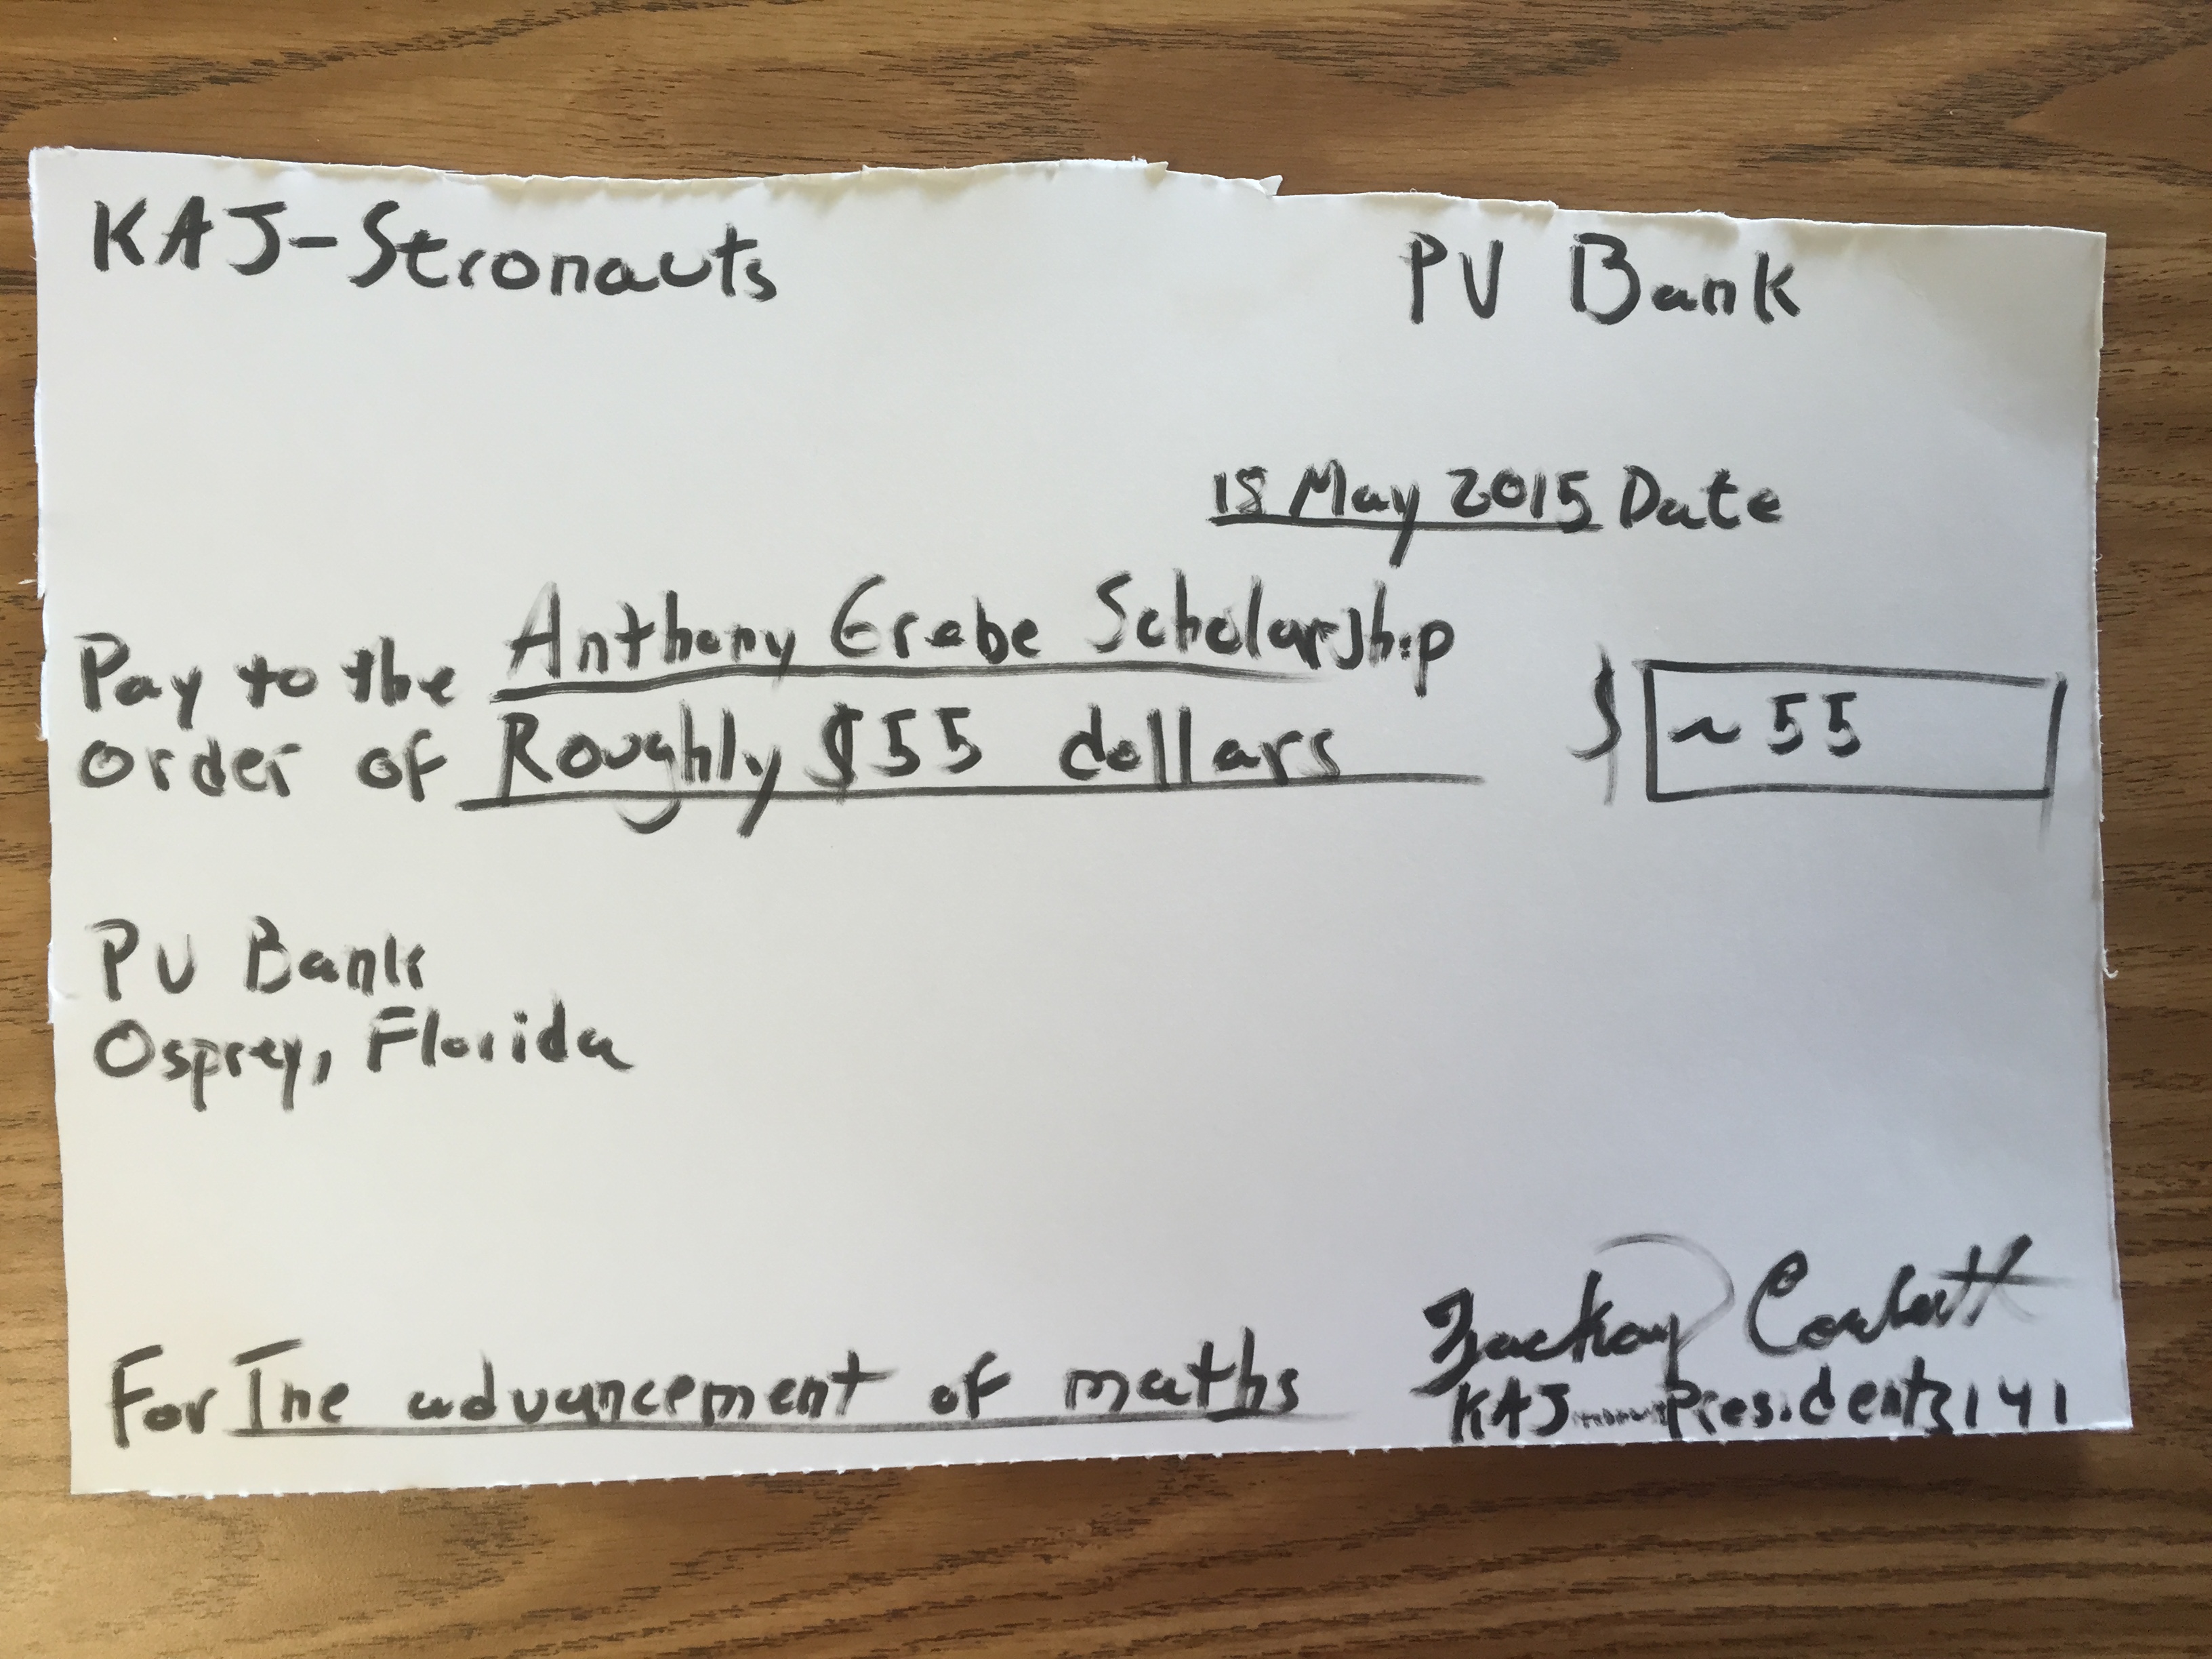 KAJ-Stronauts
PV Bank
18 May 2015 Date
Pay to the order of Anthony Grebe Scholarship
Roughly $55 dollars
$ ~55
PV Bank
Osprey, Florida
For The advancement of maths
Zackary
KAJ President 3141